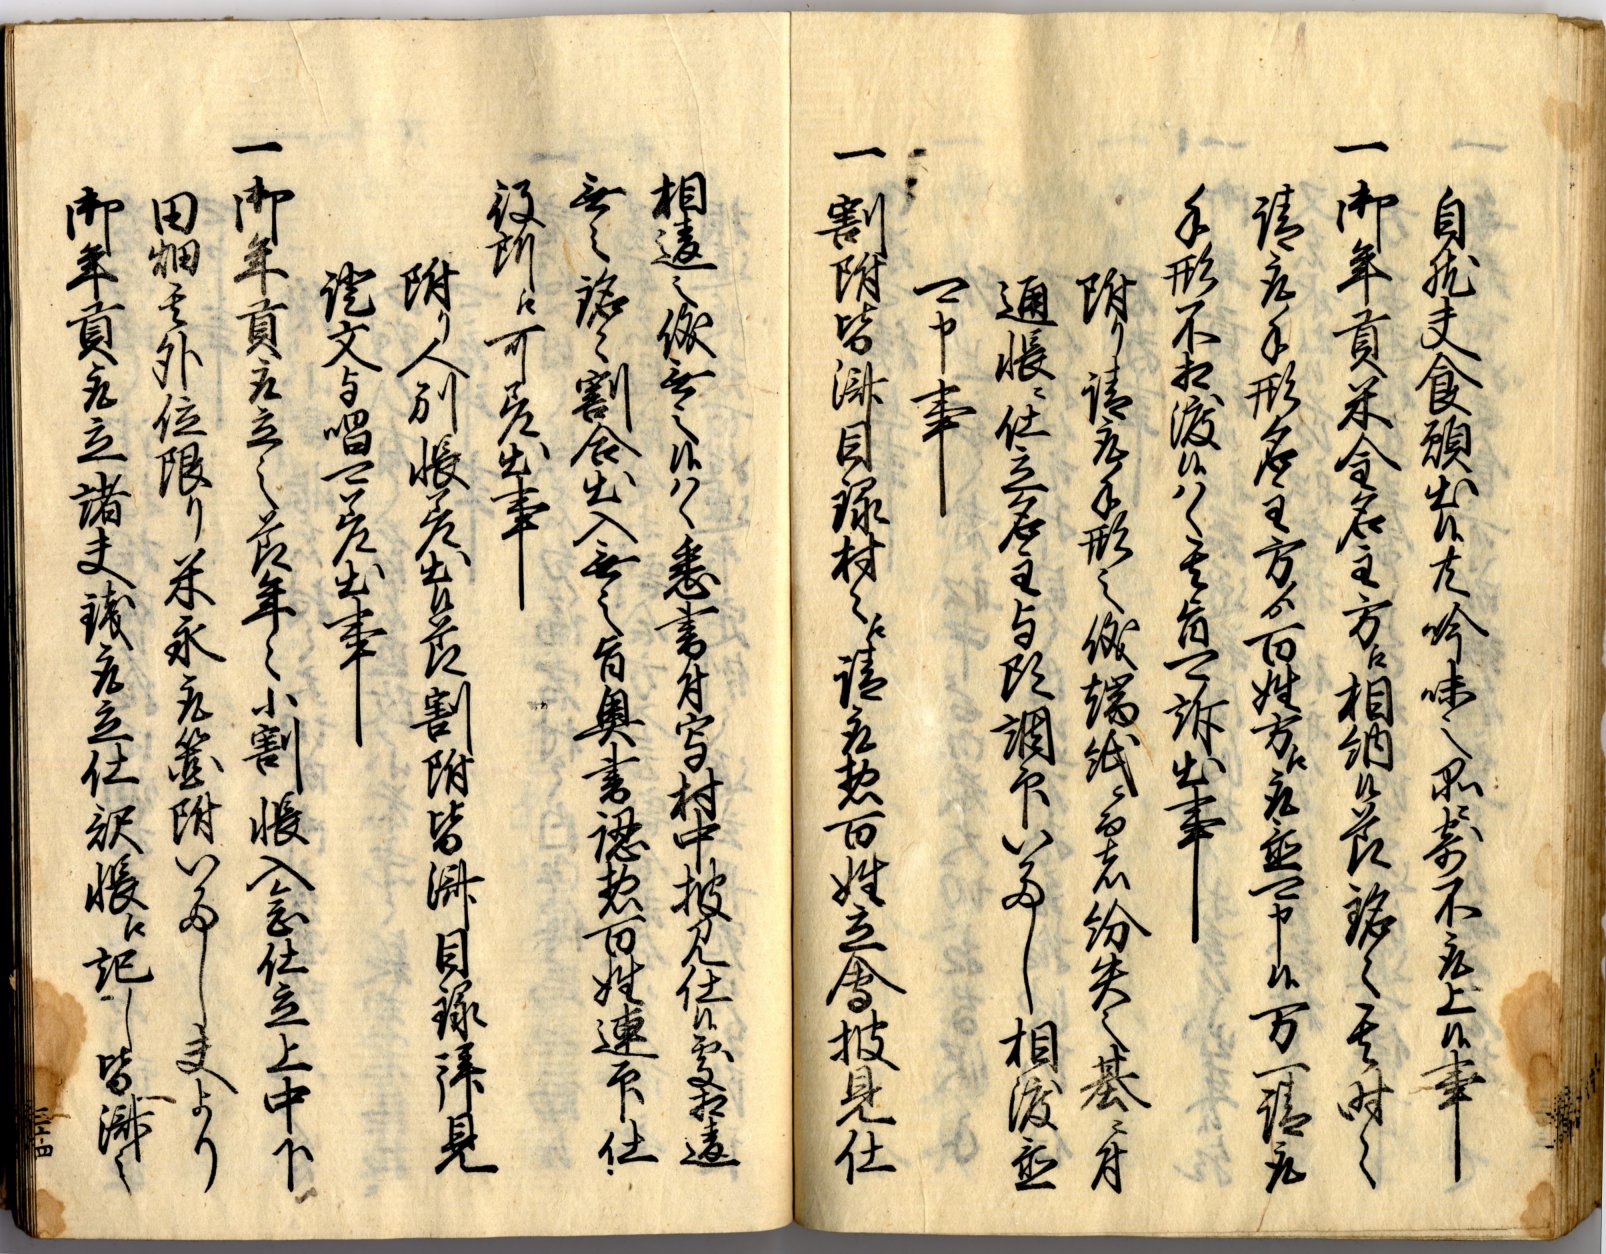 自然夫食願出候共吟味之品ニ寄不取上候事
一御年貢米金名主方江相納候節銘々其時之
請取手形名主方ゟ百姓方江取置可申候万一請取
手形不相渡候ハヽ其旨可訴出事
附り請取手形之儀端紙ニ而者紛失之基ニ付
通帳ニ仕立名主与頭調印いたし相渡置
可申事
一割附皆済目録村々江請取惣百姓立会披見仕
相違之儀無之候ハヽ悉書付写村中披見仕候処相違
無之銘々割合出入無之旨奥書認惣百姓連印仕
役所江可差出事
附り人別帳差出候節割附皆済目録拝見
証文与唱可差出事
一御年貢取立之節年々小割帳入念仕立上中下
田畑其外位限り米永取箇附いたし夫より
御年貢取立諸夫銭取立仕訳帳江記し皆済之